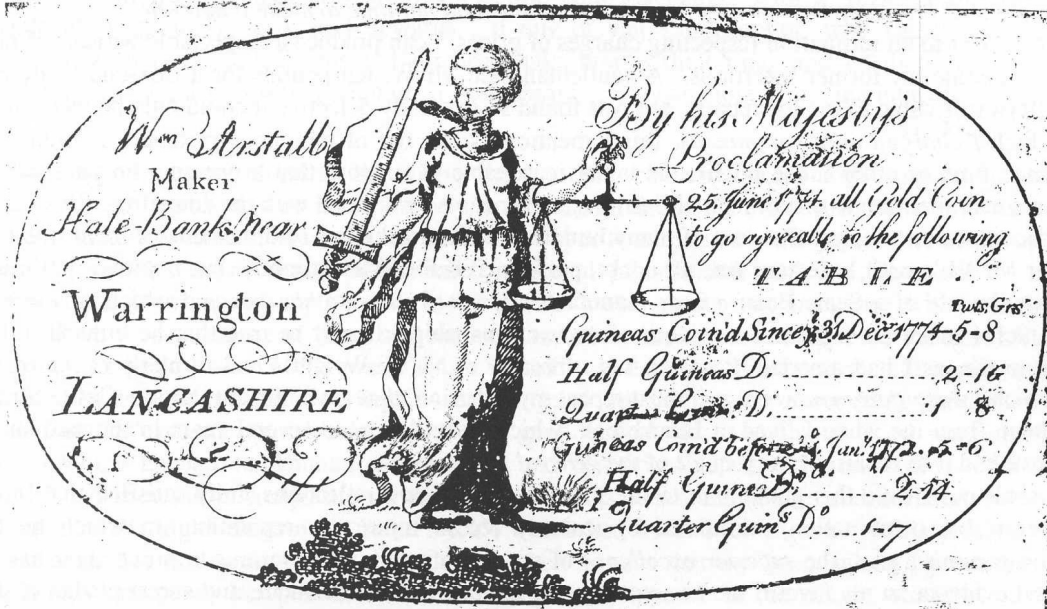 Wm Arstall
Maker
Hale-Bank, Near
Warrington
LANCASHIRE
By his Majestys
Proclamation
25 June 1774, all Gold Coin
to go agreable to the following
TABLE
Pwts. Grs.
Guineas Coin'd Since ye 31 Decr 1774-5-8
Half Guineas Do. 2-16
Quarter Guins. Do. 1-8
Guineas Coin'd before Jan. 1772 6
Half Guineas Do 2-14
Quarter Guins. Do 1-7